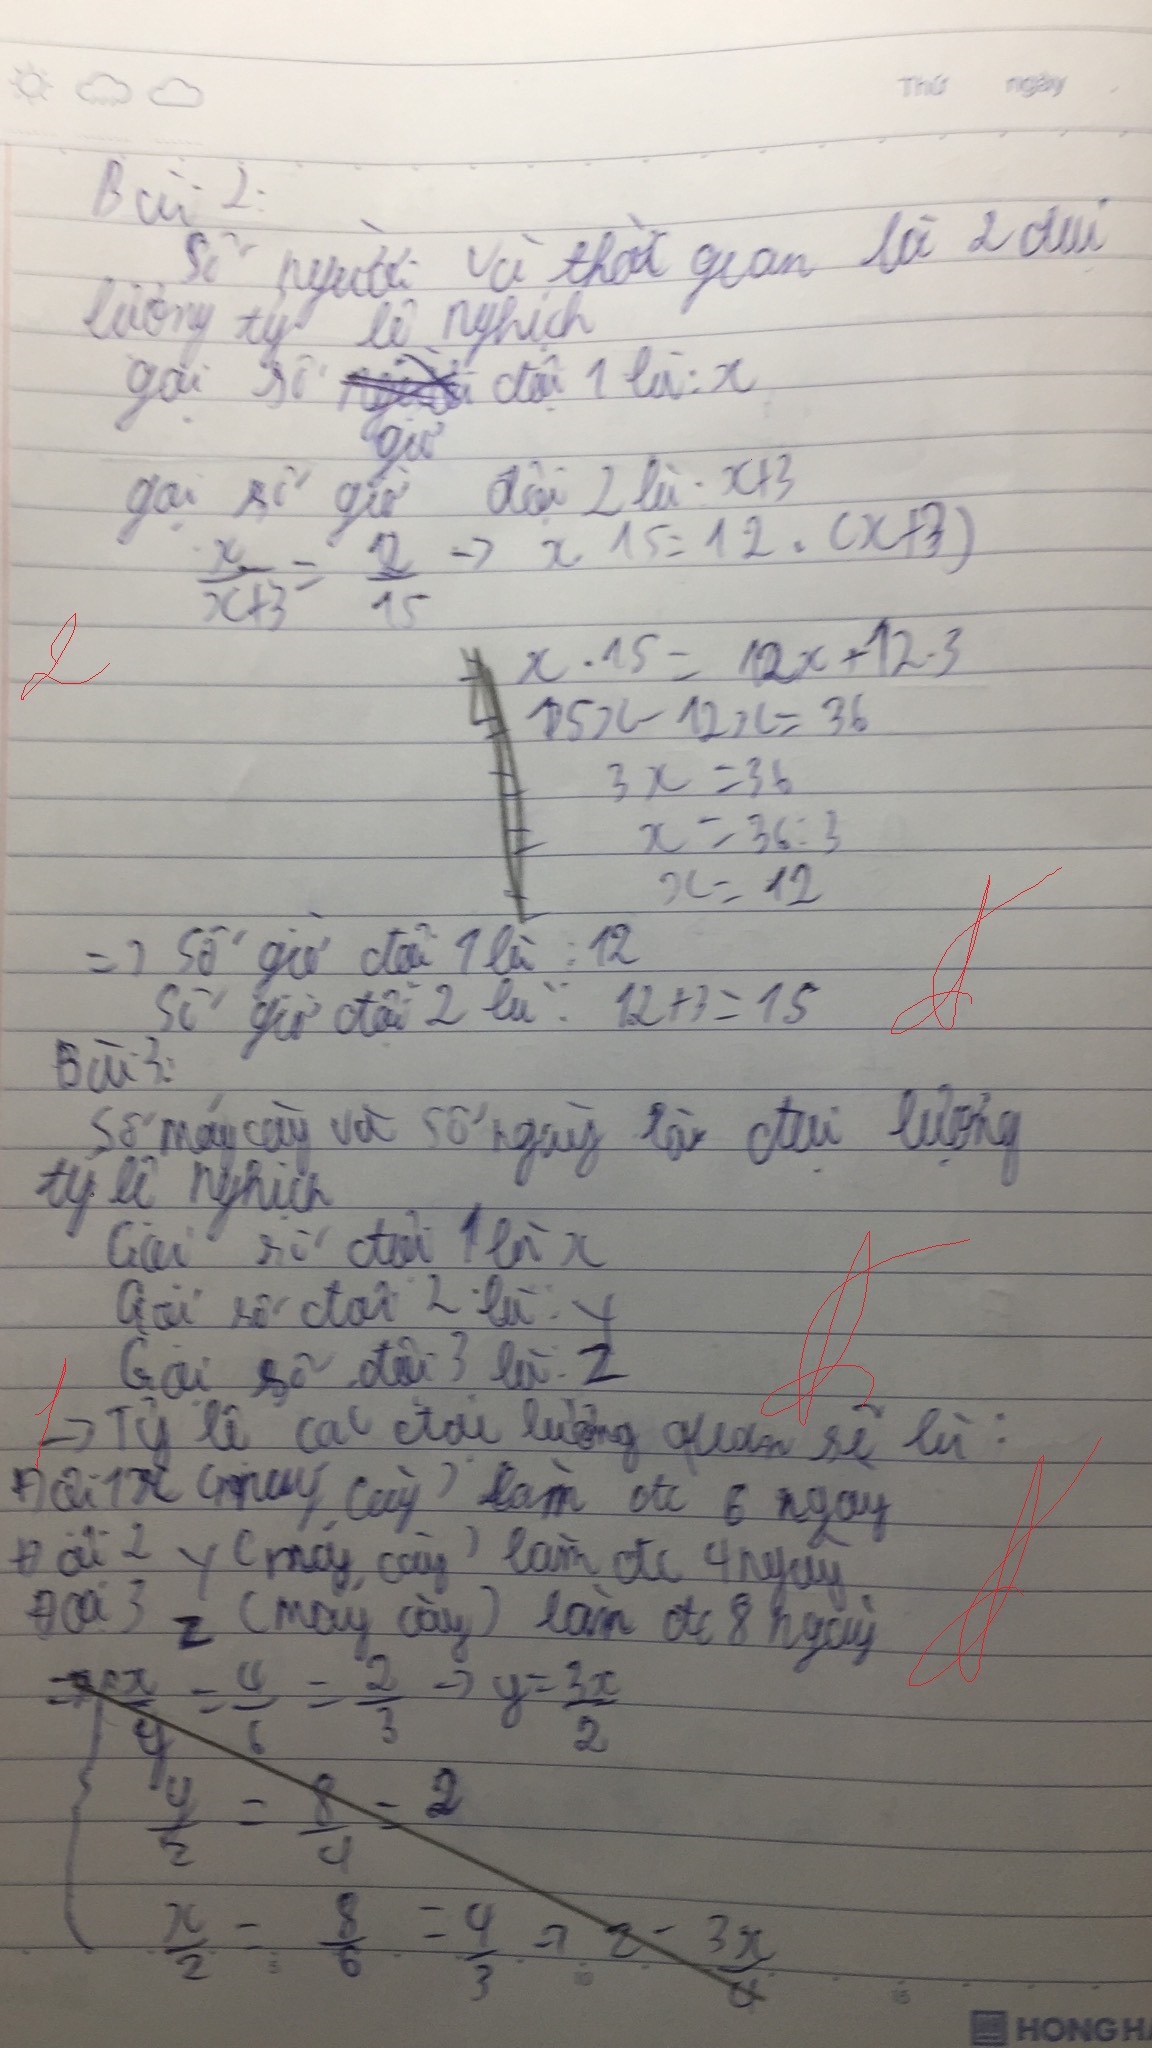 Thứ ngày
Bài 2:
Số người và thời gian là 2 đại
lượng tỷ lệ nghịch
gọi số đội 1 là: x
giờ
gọi số giờ đội 2 là: x+3
x/x+3 = 12/15 → x 15 = 12 . (x+3)
2
x . 15 = 12x + 12.3
15x - 12x = 36
3x = 36
x = 36:3
x = 12
=> Số giờ đội 1 là : 12
Số giờ đội 2 là: 12+3=15
Bài 3:
Số máy cày và số ngày là đại lượng
tỷ lê nghịch
Gọi số đội 1 là x
Gọi số đội 2 là: y
Gọi số đội 3 là: z
1
→ Tỷ lê các đại lượng quan sẽ là:
Đội 1 x (máy cày) làm đc 6 ngày
Đội 2 y (máy cày) làm đc 4 ngày
Đội 3 z (máy cày) làm đc 8 ngày
x/y = 4/6 = 2/3 → y = 3x/2
y/z = 8/4 = 2
x/z = 8/6 = 4/3 → z = 3x/4
5 10 15
HONG HA